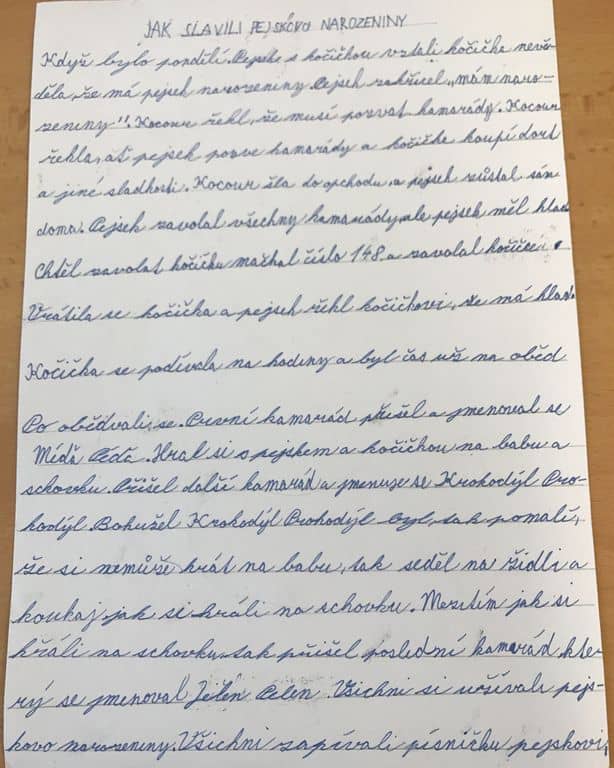 JAK SLAVILI PEJSKOVO NAROZENINY
Když bylo pondělí. Pejsek s kočičkou vstali kočička nevě-
děla, že má pejsek narozeniny. Pejsek zakřičel „mám naro-
zeniny". Kocour řekl, že musí pozvat kamarády. Kocour
řekla, ať pejsek pozve kamarády a kočička koupí dort
a jiné sladkosti. Kocour šla do opchodu a pejsek zůstal sám
doma. Pejsek zavolal všechny kamarády, ale pejsek měl hlad.
Chtěl zavolat kočičku mačkal číslo 148 a zavolal kočičce.
Vrátila se kočička a pejsek řekl kočičkovi, že má hlad.
Kočička se podívala na hodiny a byl čas už na oběd
Po obědvali se. První kamarád přišel a jmenoval se
Míďa Píďa. Hral si s pejskem a kočičkou na babu a
schovku. Přišel další kamarád a jmenuje se Krokodýl Pro-
kodýl. Bohužel Krokodýl Prokodýl byl, tak pomalí,
že si nemůže hrát na babu, tak seděl na židli a
koukaj, jak se hráli na schovku. Mezitím jak si
hráli na schovku, tak přišel poslední kamarád kte-
rý se jmenoval Jelen Pelen. Všichni si užívali pejs-
kovo narozeniny. Všichni zapívali písničku pejskovi,